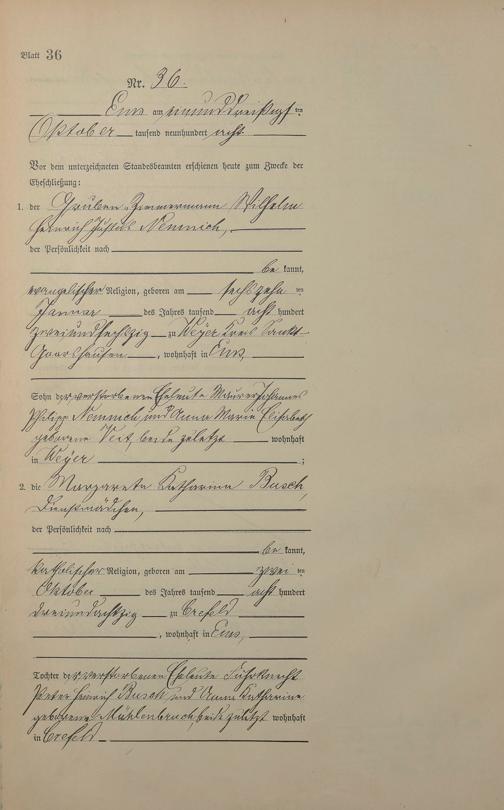 Blatt 36
Nr. 36.
Ems am einunddreißigsten
Oktober tausend neunhundert acht
Vor dem unterzeichneten Standesbeamten erschienen heute zum Zwecke der
Eheschließung:
1. der Gruben-Zimmermann Wilhelm
Heinrich Justus Nemnich,
der Persönlichkeit nach
be kannt,
evangelischer Religion, geboren am sechszehn ten
Januar des Jahres tausend acht hundert
zweiundsechszig zu Weyer Kreis Sankt
Goarshausen, wohnhaft in Ems,
Sohn der verstorbenen Eheleute Maurer Johannes
Philipp Nemnich, und Anna Maria Elisabeth
geborene Veit, beide zuletzt wohnhaft
in Weyer ;
2. die Margareta Katharina Busch,
Dienstmädchen,
der Persönlichkeit nach
be kannt,
katholischer Religion, geboren am zwei ten
Oktober des Jahres tausend acht hundert
dreiundachtzig zu Crefeld
, wohnhaft in Ems,
Tochter der verstorbenen Eheleute Fuhrknecht
Peter Heinrich Busch und Anna Katharina
geborene Mühlenbruch, beide zuletzt wohnhaft
in Crefeld